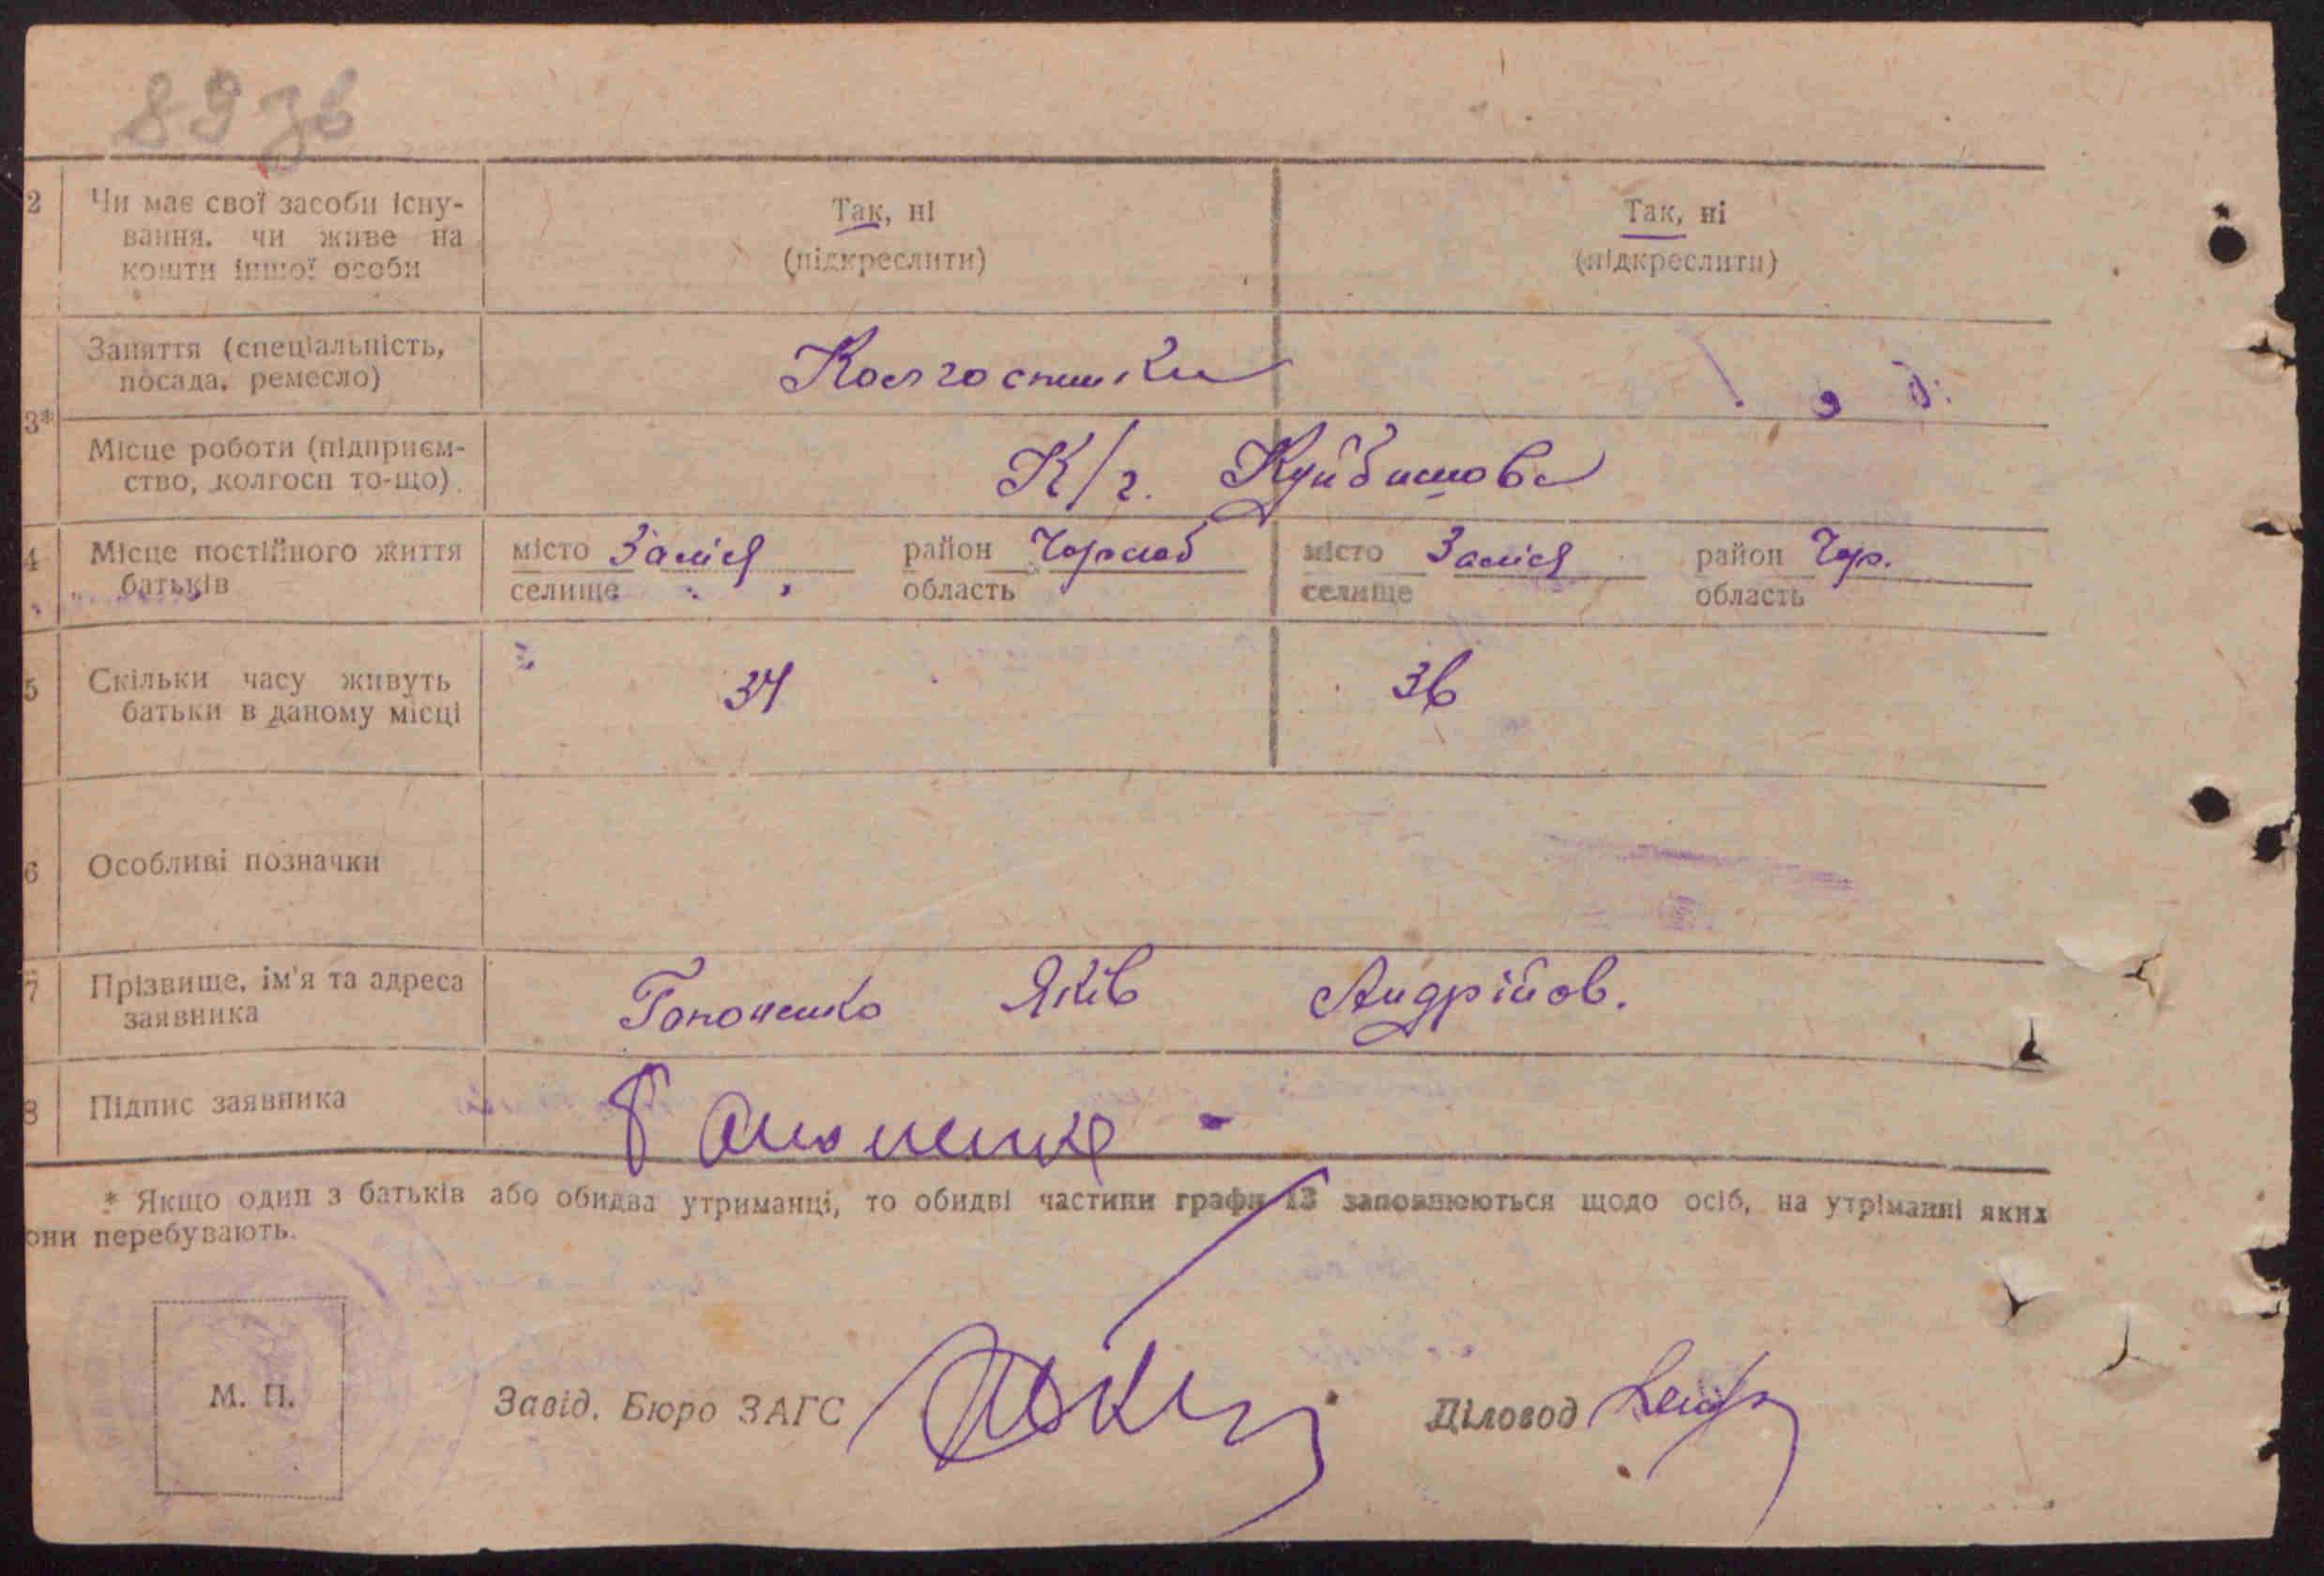 89 зв
2 Чи має свої засоби існу-
вання, чи живе на
кошти іншої особи
Так, ні
(підкреслити)
Так, ні
(підкреслити)
3*
Заняття (спеціальність,
посада, ремесло)
Колгоспники
Місце роботи (підприєм-
ство, колгосп то-що)
К/г. Куйбишова
4 Місце постійного життя
батьків
місто Заліся район Чорноб
селище область
місто Заліся район Чор.
селище область
5 Скільки часу живуть
батьки в даному місці
34 36
6 Особливі позначки
7 Прізвище, ім'я та адреса
заявника
Гопоненко Яків Андрійов.
8 Підпис заявника
Гапоненко
* Якщо один з батьків або обидва утриманці, то обидві частини графи 13 заповнюються щодо осіб, на утріманні яких
они перебувають.
М. П.
Завід. Бюро ЗАГС
Діловод